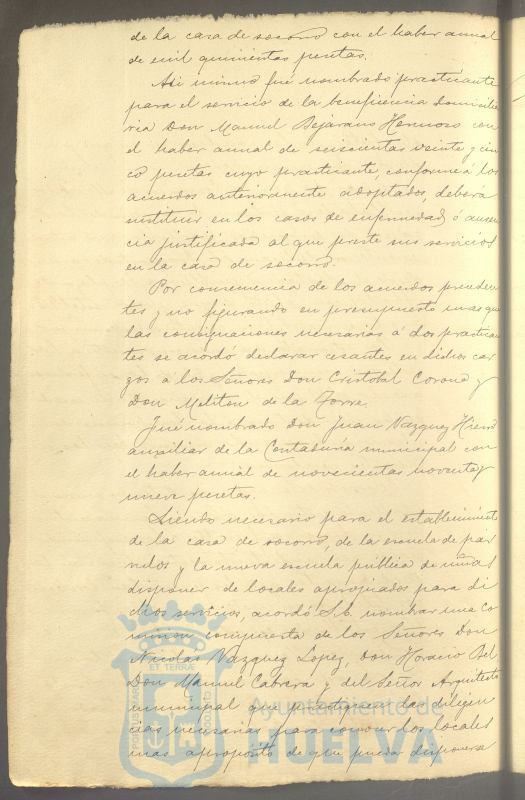 de la casa de socorro con el haber annal
de mil quinientas pesetas.
Asi mismo fué nombrado practicante
para el servicio de la beneficencia domicilia
ria Don Manuel Bejarano Hermoso con
el haber annal de seiscientas veinte y cin
co pesetas cuyo practicante, conforme á los
acuerdos anteriormente adoptados, deberá
sustituir en los casos de enfermedad ó ausen
cia justificada al que preste sus servicios
en la casa de socorro.
Por consecuencia de los acuerdos preceden
tes y no figurando en presupuesto mas que
las consignaciones necesarias á dos practican
tes se acordó declarar cesantes en dichos car
gos á los Señores Don Cristobal Corona y
Don Meliton de la Torre.
Fué nombrado Don Juan Vazquez Hierro
auxiliar de la Contaduría municipal con
el haber annal de novecientas noventa y
nueve pesetas.
Siendo necesario para el establecimiento
de la casa de socorro, de la escuela de par
vulos y la nueva escuela publica de niñas
disponer de locales apropiados para di
chos servicios, acordó S.E. nombrar una co
mision compuesta de los Señores Don
Nicolas Vazquez Lopez, Don Horacio Bel
Don Manuel Cabrera y del Señor Arquitecto
municipal que practiquen las diligen
cias necesarias para conocer los locales
mas aproposito de que pueda disponerse
PORTUS MARIS ET TERRÆ CUSTODIA
Ayuntamiento de
HUELVA